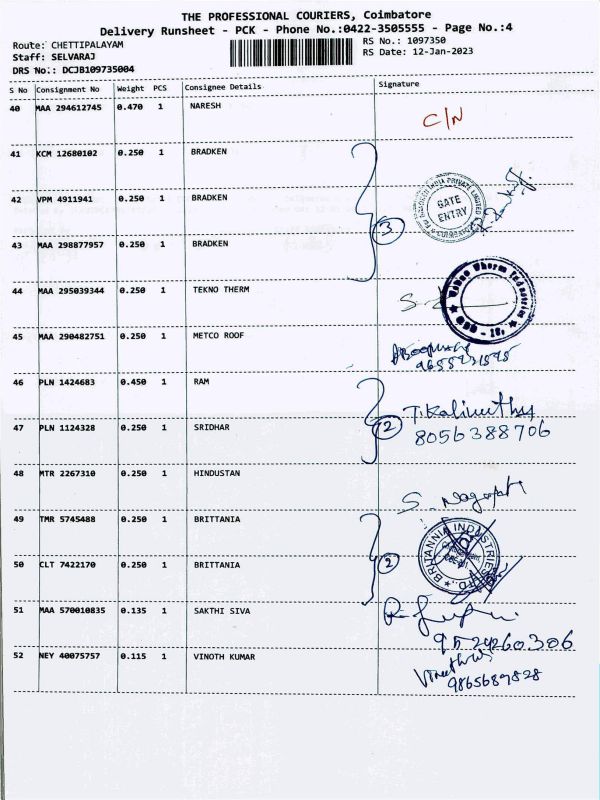 THE PROFESSIONAL COURIERS, Coimbatore
Delivery Runsheet - PCK - Phone No.:0422-3505555 - Page No.:4
Route: CHETTIPALAYAM
RS No.: 1097350
Staff: SELVARAJ
RS Date: 12-Jan-2023
DRS No.: DCJB109735004
S No Consignment No Weight PCS Consignee Details Signature
40 MAA 294612745 0.470 1 NARESH C/N
41 KCM 12680102 0.250 1 BRADKEN
42 VPM 4911941 0.250 1 BRADKEN
GATE ENTRY
3
43 MAA 298877957 0.250 1 BRADKEN
44 MAA 295039344 0.250 1 TEKNO THERM
45 MAA 290482751 0.250 1 METCO ROOF
46 PLN 1424683 0.450 1 RAM
2
47 PLN 1124328 0.250 1 SRIDHAR
8056388706
48 MTR 2267310 0.250 1 HINDUSTAN
49 TMR 5745488 0.250 1 BRITTANIA
2
BRITANNIA INDUSTRIES LTD.
50 CLT 7422170 0.250 1 BRITTANIA
51 MAA 570010835 0.135 1 SAKTHI SIVA
52 NEY 40075757 0.115 1 VINOTH KUMAR
9865689828